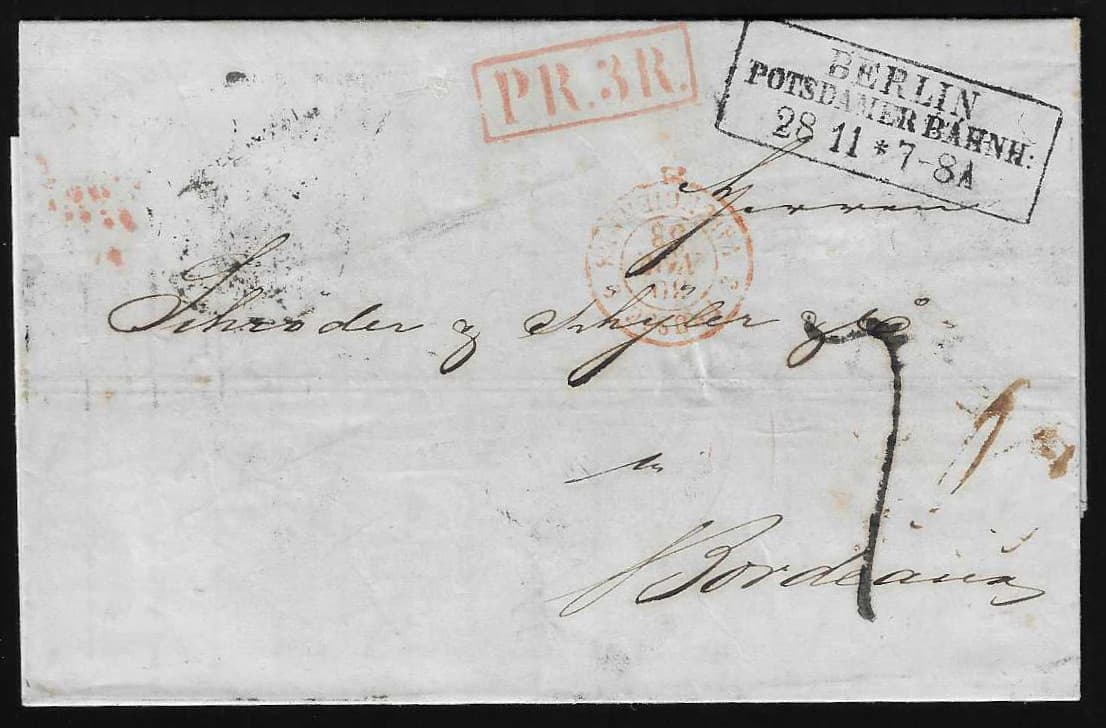 P.R.3R.
BERLIN
POTSDAMER BAHNH:
28 11 * 7-8A
Herren
Schröder & Schyler & Co
in
Bordeaux
7